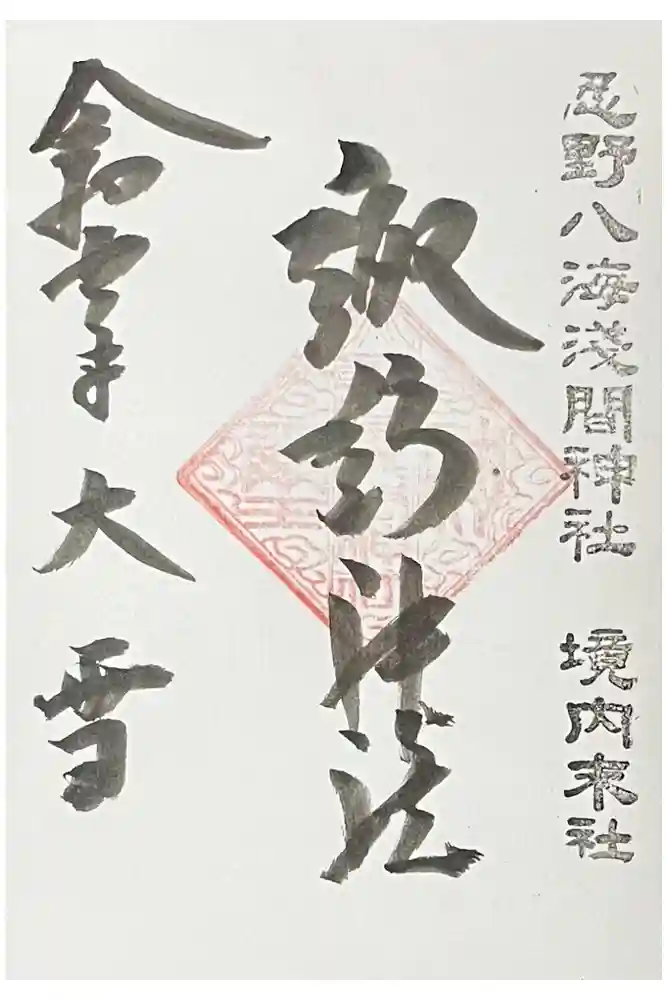 忍野八海淺間神社 境内末社
諏訪神社
令和 年 大雪